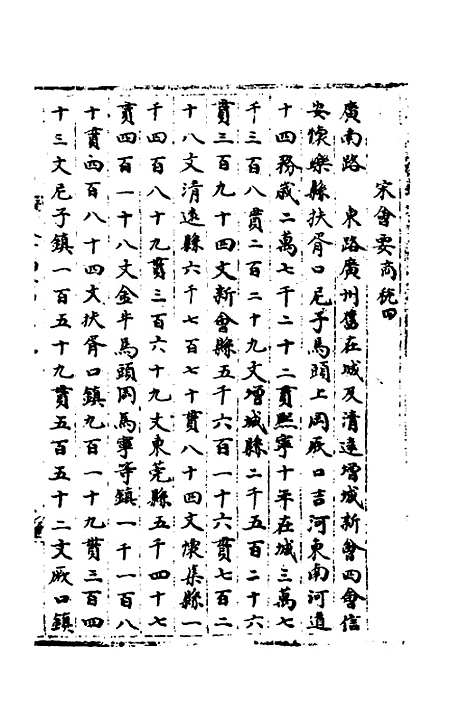 宋會要商稅四
廣南路　東路廣州舊在城及清遠增城新會四會信
安懷樂縣扶胥口尼子馬頭上岡厥口吉河東南河道
十四務歲二萬七千二十二貫熙寧十年在城三萬七
千三百八貫二百二十九文增城縣二千五百二十六
貫三百九十四文新會縣五千六百一十六貫七百二
十八文清遠縣六千七百七十貫八十四文懷集縣一
千四百八十九貫三百六十九文東莞縣五千四十七
貫四百一十八文金牛馬頭岡馬寧等鎮一千一百八
十貫四百八十四文扶胥口鎮九百一十九貫三百四
十三文尼子鎮一百五十九貫五百五十二文厥口鎮